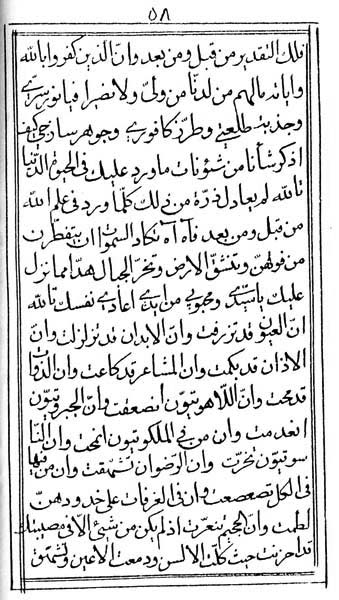 ٥٨
تلك التقدير من قبل ومن بعد وان الذين كفروا بالله
واياته مالهم من لدنا من ولي ولا نصير ا فيا نور سري
وجذبة طلعتي وطرز كافوري وجوهر ساذجي كيف
اذكر شأنا من شئونات ما ورد عليك في الحيوة الدنيا
تالله لم يعادل ذرة من ذلك كلما ورد في علم الله
من قبل ومن بعد فآه آه تكاد السموات ان يتفطرن
من فوقهن وتنشق الارض وتخر الجبال هدا مما نزل
عليك يا سيدي ومحبوبي من ايدي اعادي نفسك تالله
ان العيون قد تزرفت وان الابدان قد تزلزلت وان
الاذان قد بكمت وان المشاعر قد كاعت وان الذوات
قد محت وان اللاهوتيون انصعقت وان الجبروتيون
انعدمت وان من في الملكوتيون انمحت وان النا
سوتيون تخرت وان الرضوان تشهقت وان من فيها
في الكل تصعصعت وان في الغرفات على خدودهن
لطمت وان الجحيم تسعرت اذ لم يكن من شيئ الا في مصيبتك
قد احزنت حيث كلت الالسن ودمعت الاعين وتشهق